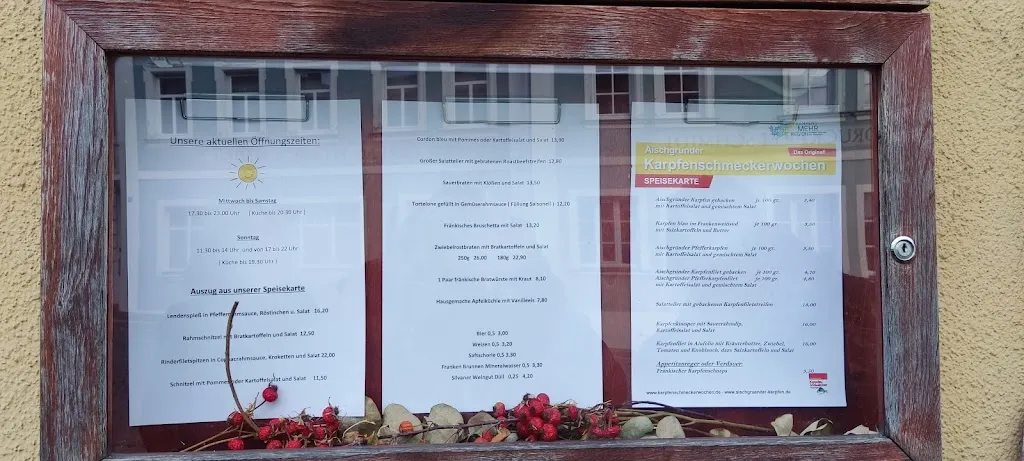 Unsere aktuellen Öffnungszeiten:
Mittwoch bis Samstag
17.30 bis 23.00 Uhr ( Küche bis 20.30 Uhr )
Sonntag
11.30 bis 14 Uhr und von 17 bis 22 Uhr
( Küche bis 19.30 Uhr )
Auszug aus unserer Speisekarte
Lendenspieß in Pfefferrahmsauce, Röstinchen u. Salat 16,20
Rahmschnitzel mit Bratkartoffeln und Salat 12,50
Rinderfiletspitzen in Cognacrahmsauce, Kroketten und Salat 22,00
Schnitzel mit Pommes oder Kartoffelsalat und Salat 11,50
Cordon bleu mit Pommes oder Kartoffelsalat und Salat 13,90
Großer Salatteller mit gebratenen Roastbeefstreifen 17,80
Sauerbraten mit Klößen und Salat 13,50
Tortelone gefüllt in Gemüserahmsauce ( Füllung Saisonell ) 12,20
Fränkisches Bruschetta mit Salat 13,20
Zwiebelrostbraten mit Bratkartoffeln und Salat
250g 26,00 180g 22,90
1 Paar fränkische Bratwürste mit Kraut 8,10
Hausgemachte Apfelküchle mit Vanilleeis 7,80
Bier 0,5 3,00
Weizen 0,5 3,20
Saftschorle 0,5 3,30
Franken Brunnen Mineralwasser 0,5 3,30
Silvaner Weingut Düll 0,25 4,20
MEHR
Aischgründer Das Original!
Karpfenschmeckerwochen
SPEISEKARTE
Aischgründer Karpfen gebacken je 100 gr.
mit Kartoffelsalat und gemischtem Salat
Karpfen blau im Frankenweinsud je 100 gr.
mit Salzkartoffeln und Butter
Aischgründer Pfefferkarpfen je 100 gr.
mit Kartoffelsalat und gemischtem Salat
Aischgründer Karpfenfilet gebacken je 100 gr.
Aischgründer Pfefferkarpfenfilet je 100 gr.
mit Kartoffelsalat und gemischtem Salat
Salatteller mit gebackenen Karpfenfiletstreifen
Karpfenknusper mit Sauerrahmdip,
Kartoffelsalat und Salat 16,00
Karpfenfilet in Alufolie mit Kräuterbutter, Zwiebel,
Tomaten und Knoblauch, dazu Salzkartoffeln und Salat
Appetitanreger oder Vordauer:
Fränkischer Karpfenschnaps
www.karpfenschmeckerwochen.de - www.aischgruender-karpfen.de